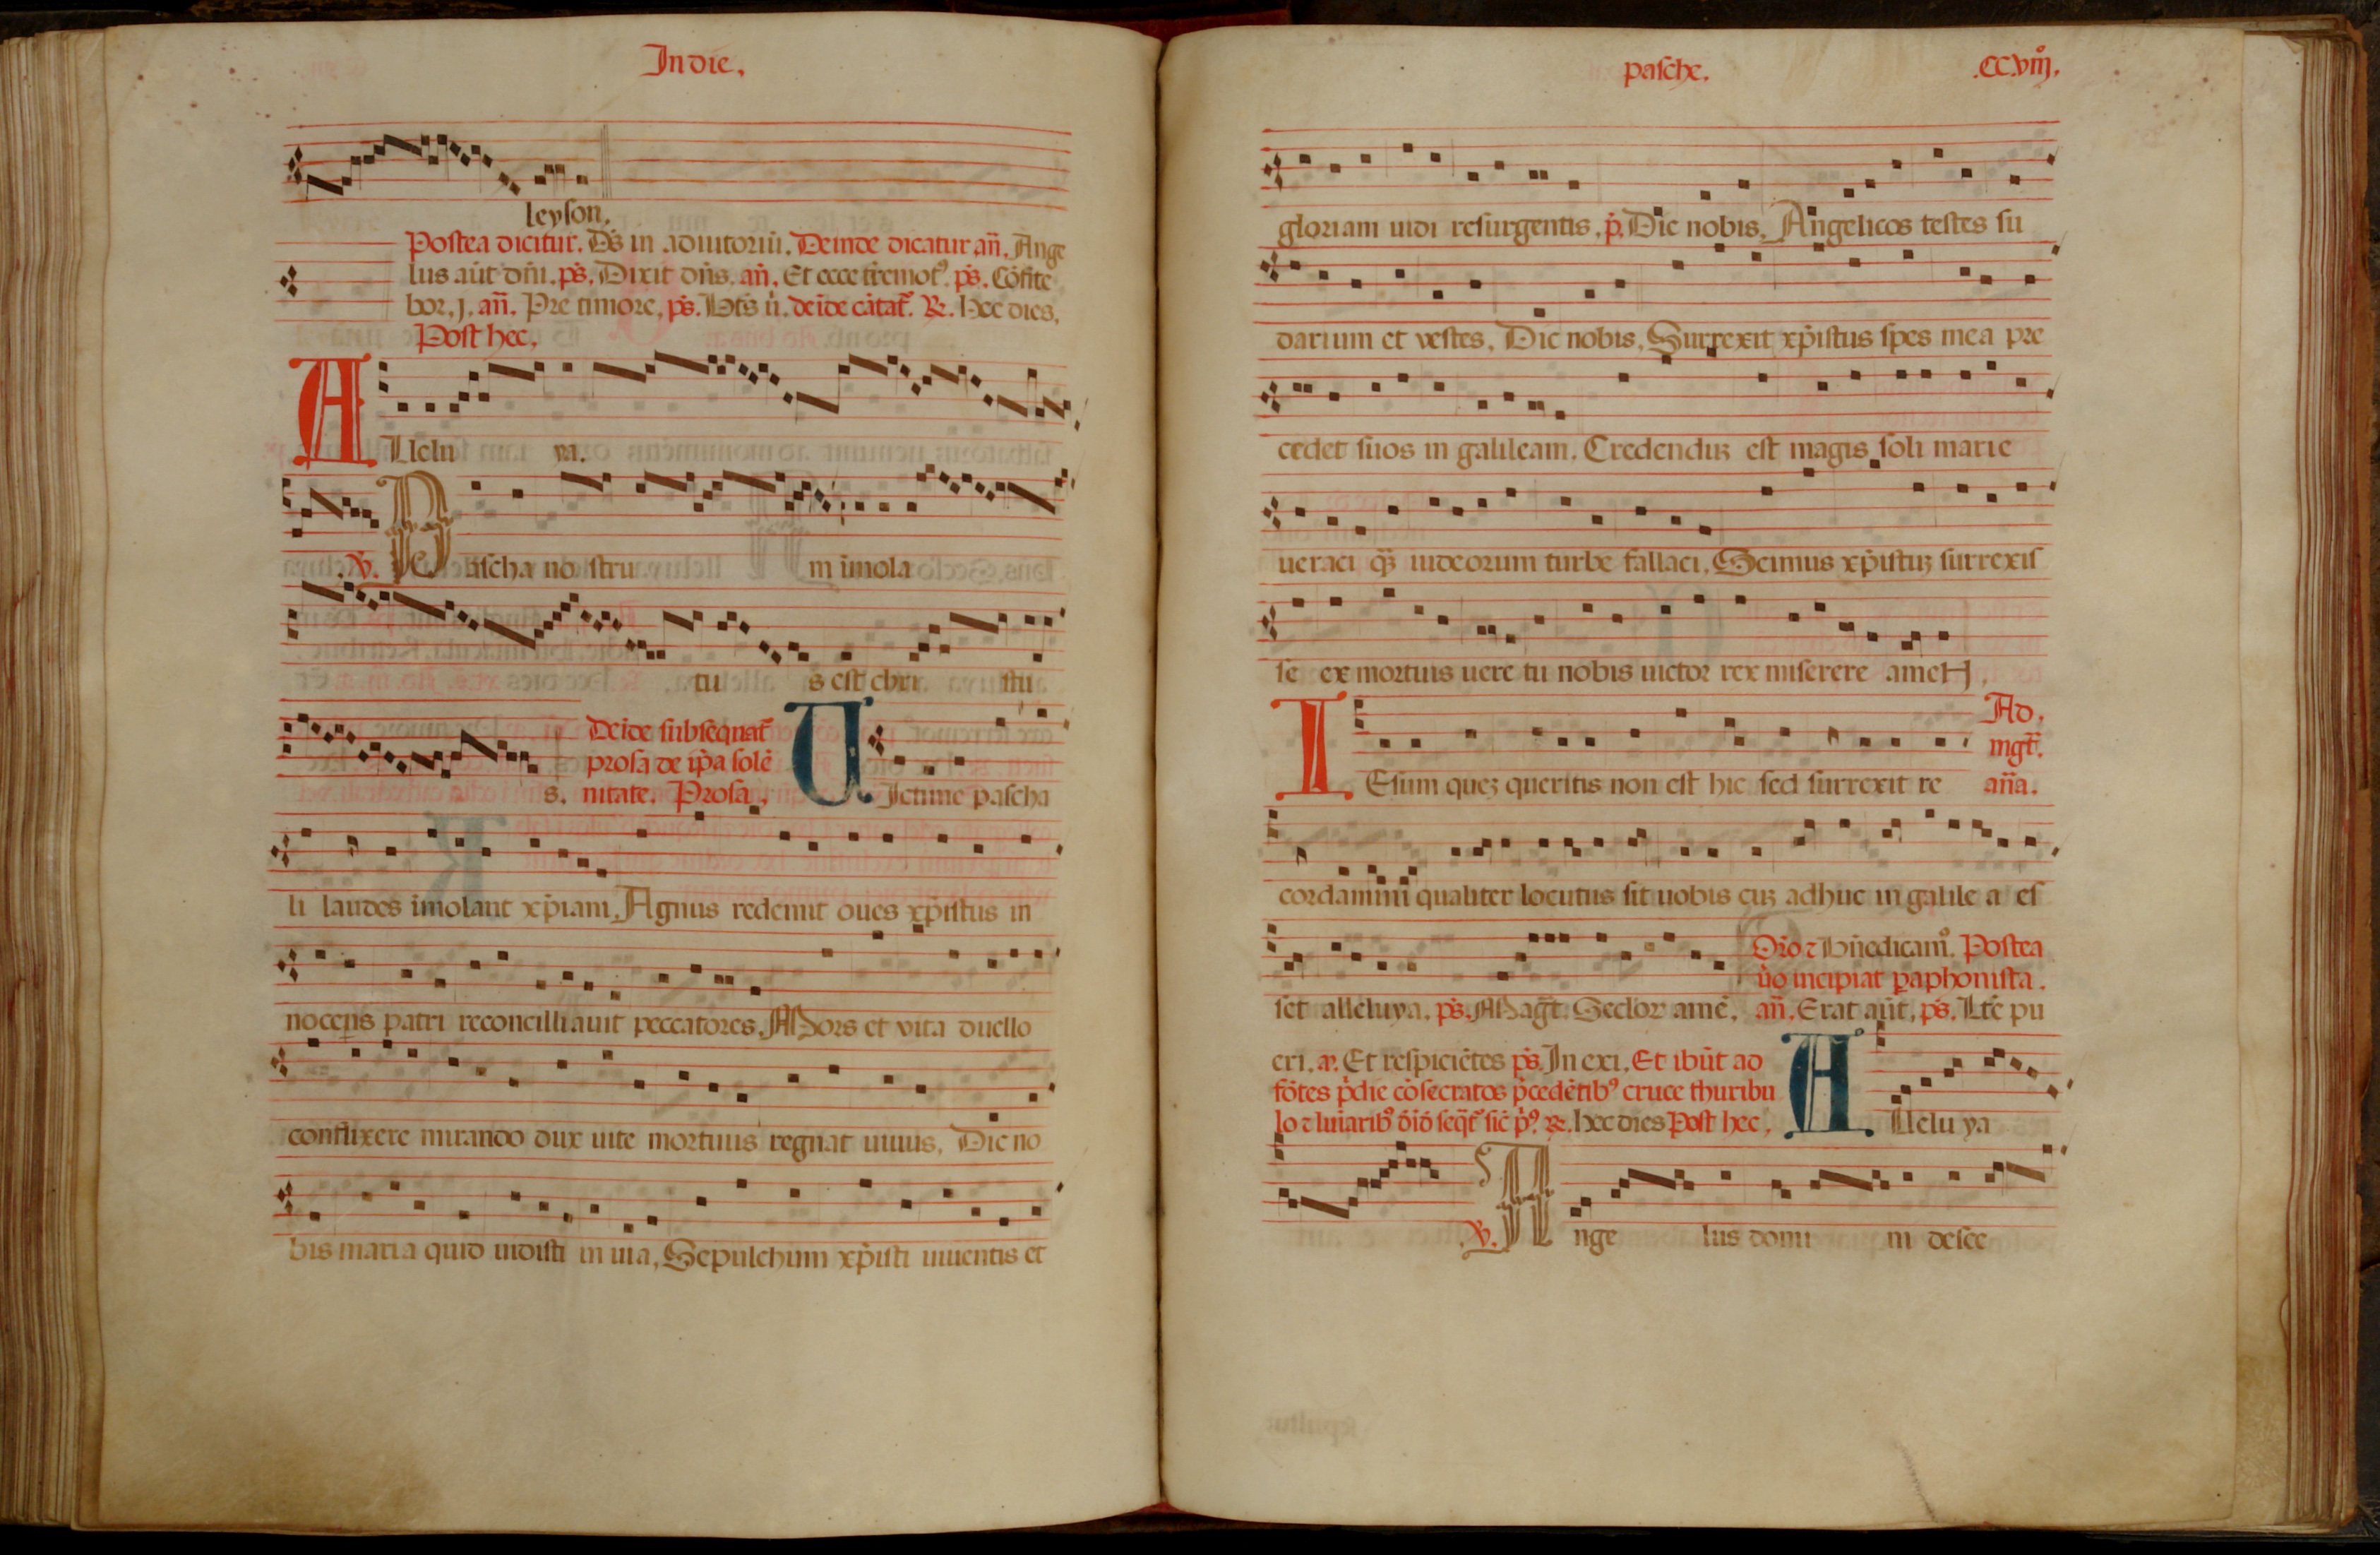 In die.
leyson.
Postea dicitur. Ds in adiutoriū. Deinde dicatur añ. Ange
lus aūt dñi. ps. Dixit dñs. añ. Et ecce t̄remot⁹. ps. Cōfite
bor. j. añ. Pre timore. ps. deīde cātat͛. ℞. hec dies.
Post hec.
ALlelu ya.
℣. Pascha nostru m īmola
tu s est chri stu
Deīde subsequat͛
prosa de ip̄a solē
s. nitate. Prosa. VIctime pascha
li laudes īmolant xp̄iani. Agnus redemit oues xp̄istus in
nocens patri reconcilliauit peccatores. Mors et vita duello
conflixere mirando dux uite mortuus regnat uiuus. Dic no
bis maria quid uidisti in uia. Sepulchum xp̄isti uiuentis et
pasche. .CC.viiij.
gloriam uidi resurgentis. p̄. Dic nobis. Angelicos testes su
darium et vestes. Dic nobis. Surrexit xp̄istus spes mea pre
cedet suos in galileam. Credenduꝫ est magis soli marie
ueraci qꝫ iudeorum turbe fallaci. Scimus xp̄istuꝫ surrexis
se ex mortuis uere tu nobis uictor rex miserere amen.
Ad.
mgt͛.
IEsum queꝫ queritis non est hic sed surrexit re añа.
cordamini qualiter locutus sit uobis cuꝫ adhuc in galile a es
Or̄o ⁊ Bn̄edicam⁹. Postea
ūo incipiat paphonista.
set alleluya. ps. Magt̄. Seclor amē. añ. Erat aūt. ps. Lte pu
eri. Et respiciētes ps. In exi. Et ibūt ad
fōtes p̄die cōsecratos p̄cedētib⁹ cruce thuribu
lo ⁊ sic p⁹. ℞. hec dies Post hec. ALlelu ya
℣. Ange lus domi ni desce